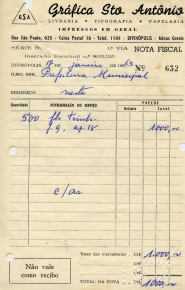 Gráfica Sto. Antônio
GSA
LIVRARIA - TIPOGRAFIA - PAPELARIA
IMPRESSOS EM GERAL
Rua São Paulo, 635 - Caixa Postal 16 - Telef. 1184 - DIVINÓPOLIS - Minas Gerais
1ª VIA NOTA FISCAL
Nº 632
DIVINÓPOLIS, de janeiro de 1963
ILMO. SNR. Prefeitura Municipal
ENDEREÇO nesta
Quantidade DISCRIMINAÇÃO DO SERVIÇO PREÇOS
Total
500 fls timb. 1.000,00
c/as
Valor das mercadorias 1.000,00
Não vale
como recibo
TOTAL DA NOTA 1.000,00